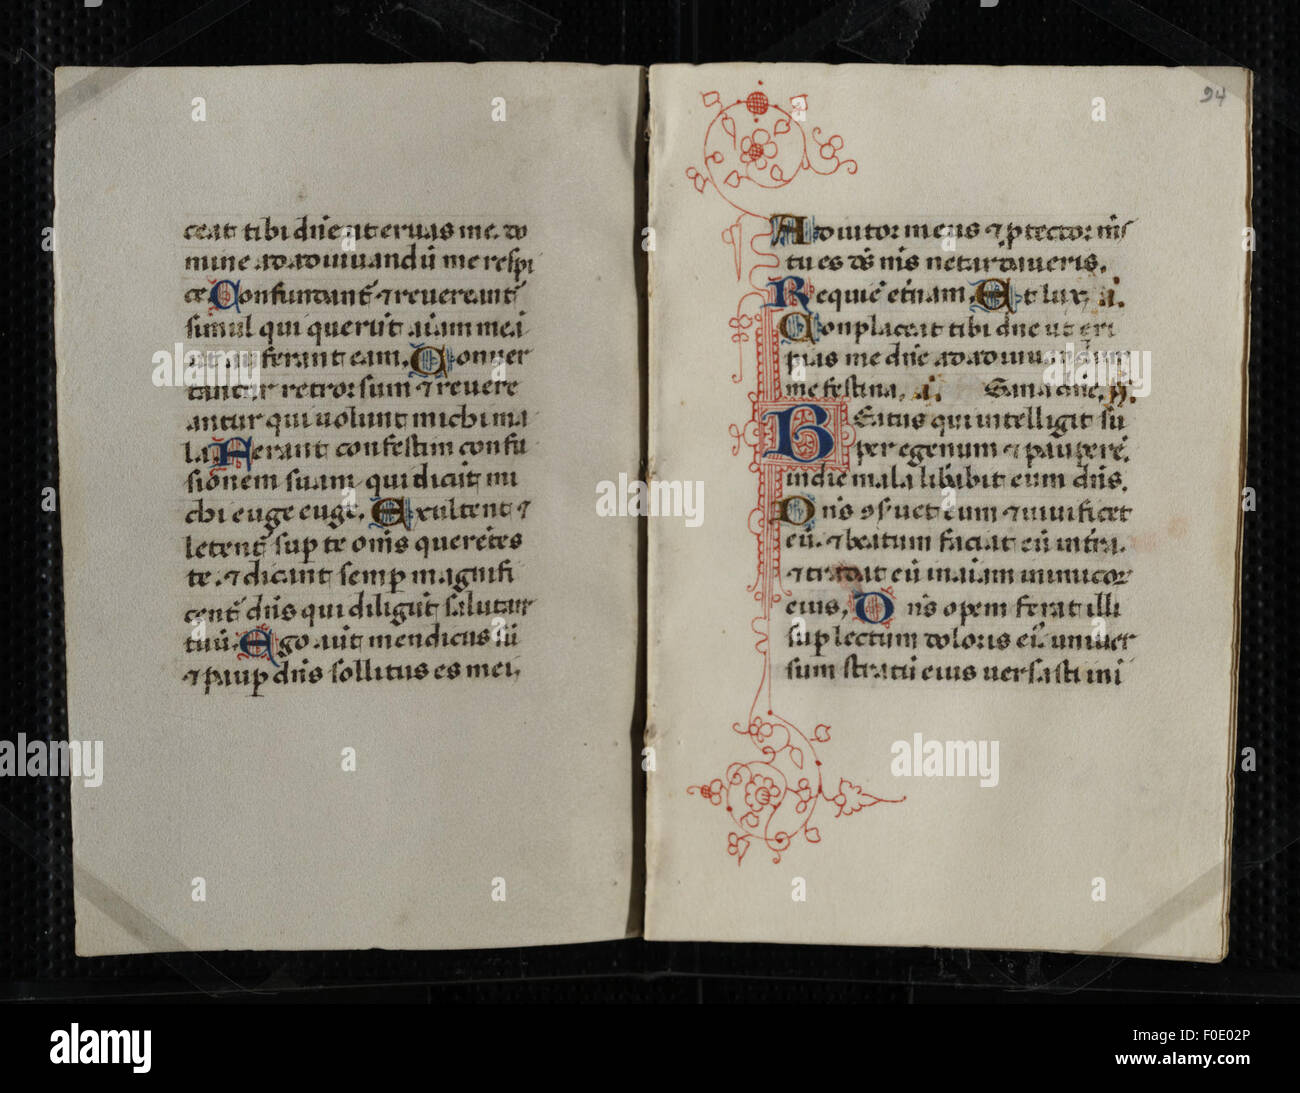 ceat tibi dñe ut eruas me. do
mine ad adiuuandũ me respi
ce. Confundant̃ ⁊ reuereant̃
simul qui querũt aĩam mea
ut auferant eam. Conuer
tantur retrorsum ⁊ reuere
antur qui uolunt michi ma
la. Ferant confestim confu
sionem suam. qui dicũt mi
chi euge euge. Exultent ⁊
letent̃ sup te om̃s querẽtes
te. ⁊ dicant semp magnifi
cent̃ dñs qui diligũt salutar
tuũ. Ego aut̃ mendicus sũ
⁊ paup dñs sollitus es mei.
24
Adiutor meus ⁊ ptector m̃s
tu es dñs nis netardaueris.
Requiẽ et̃nam. Et lux. a.
Conplaceat tibi dñe ut eri
pias me dñe ad adiuuandum
me festina. a. Sana dñe. p̃.
BEatus qui intelligit su
per egenum ⁊ pauperẽ.
in die mala libabit eum dñs.
Dñs ꝯseruet eum ⁊ uiuificet
eũ. ⁊ beatum faciat eũ in tr̃a.
⁊ tradat eũ in aĩam inimicor
eius. Dñs opem ferat illi
sup lectum doloris ei. uniuer
sum stratũ eius uersasti in i
alamy
Image ID: F0E02P
www.alamy.com